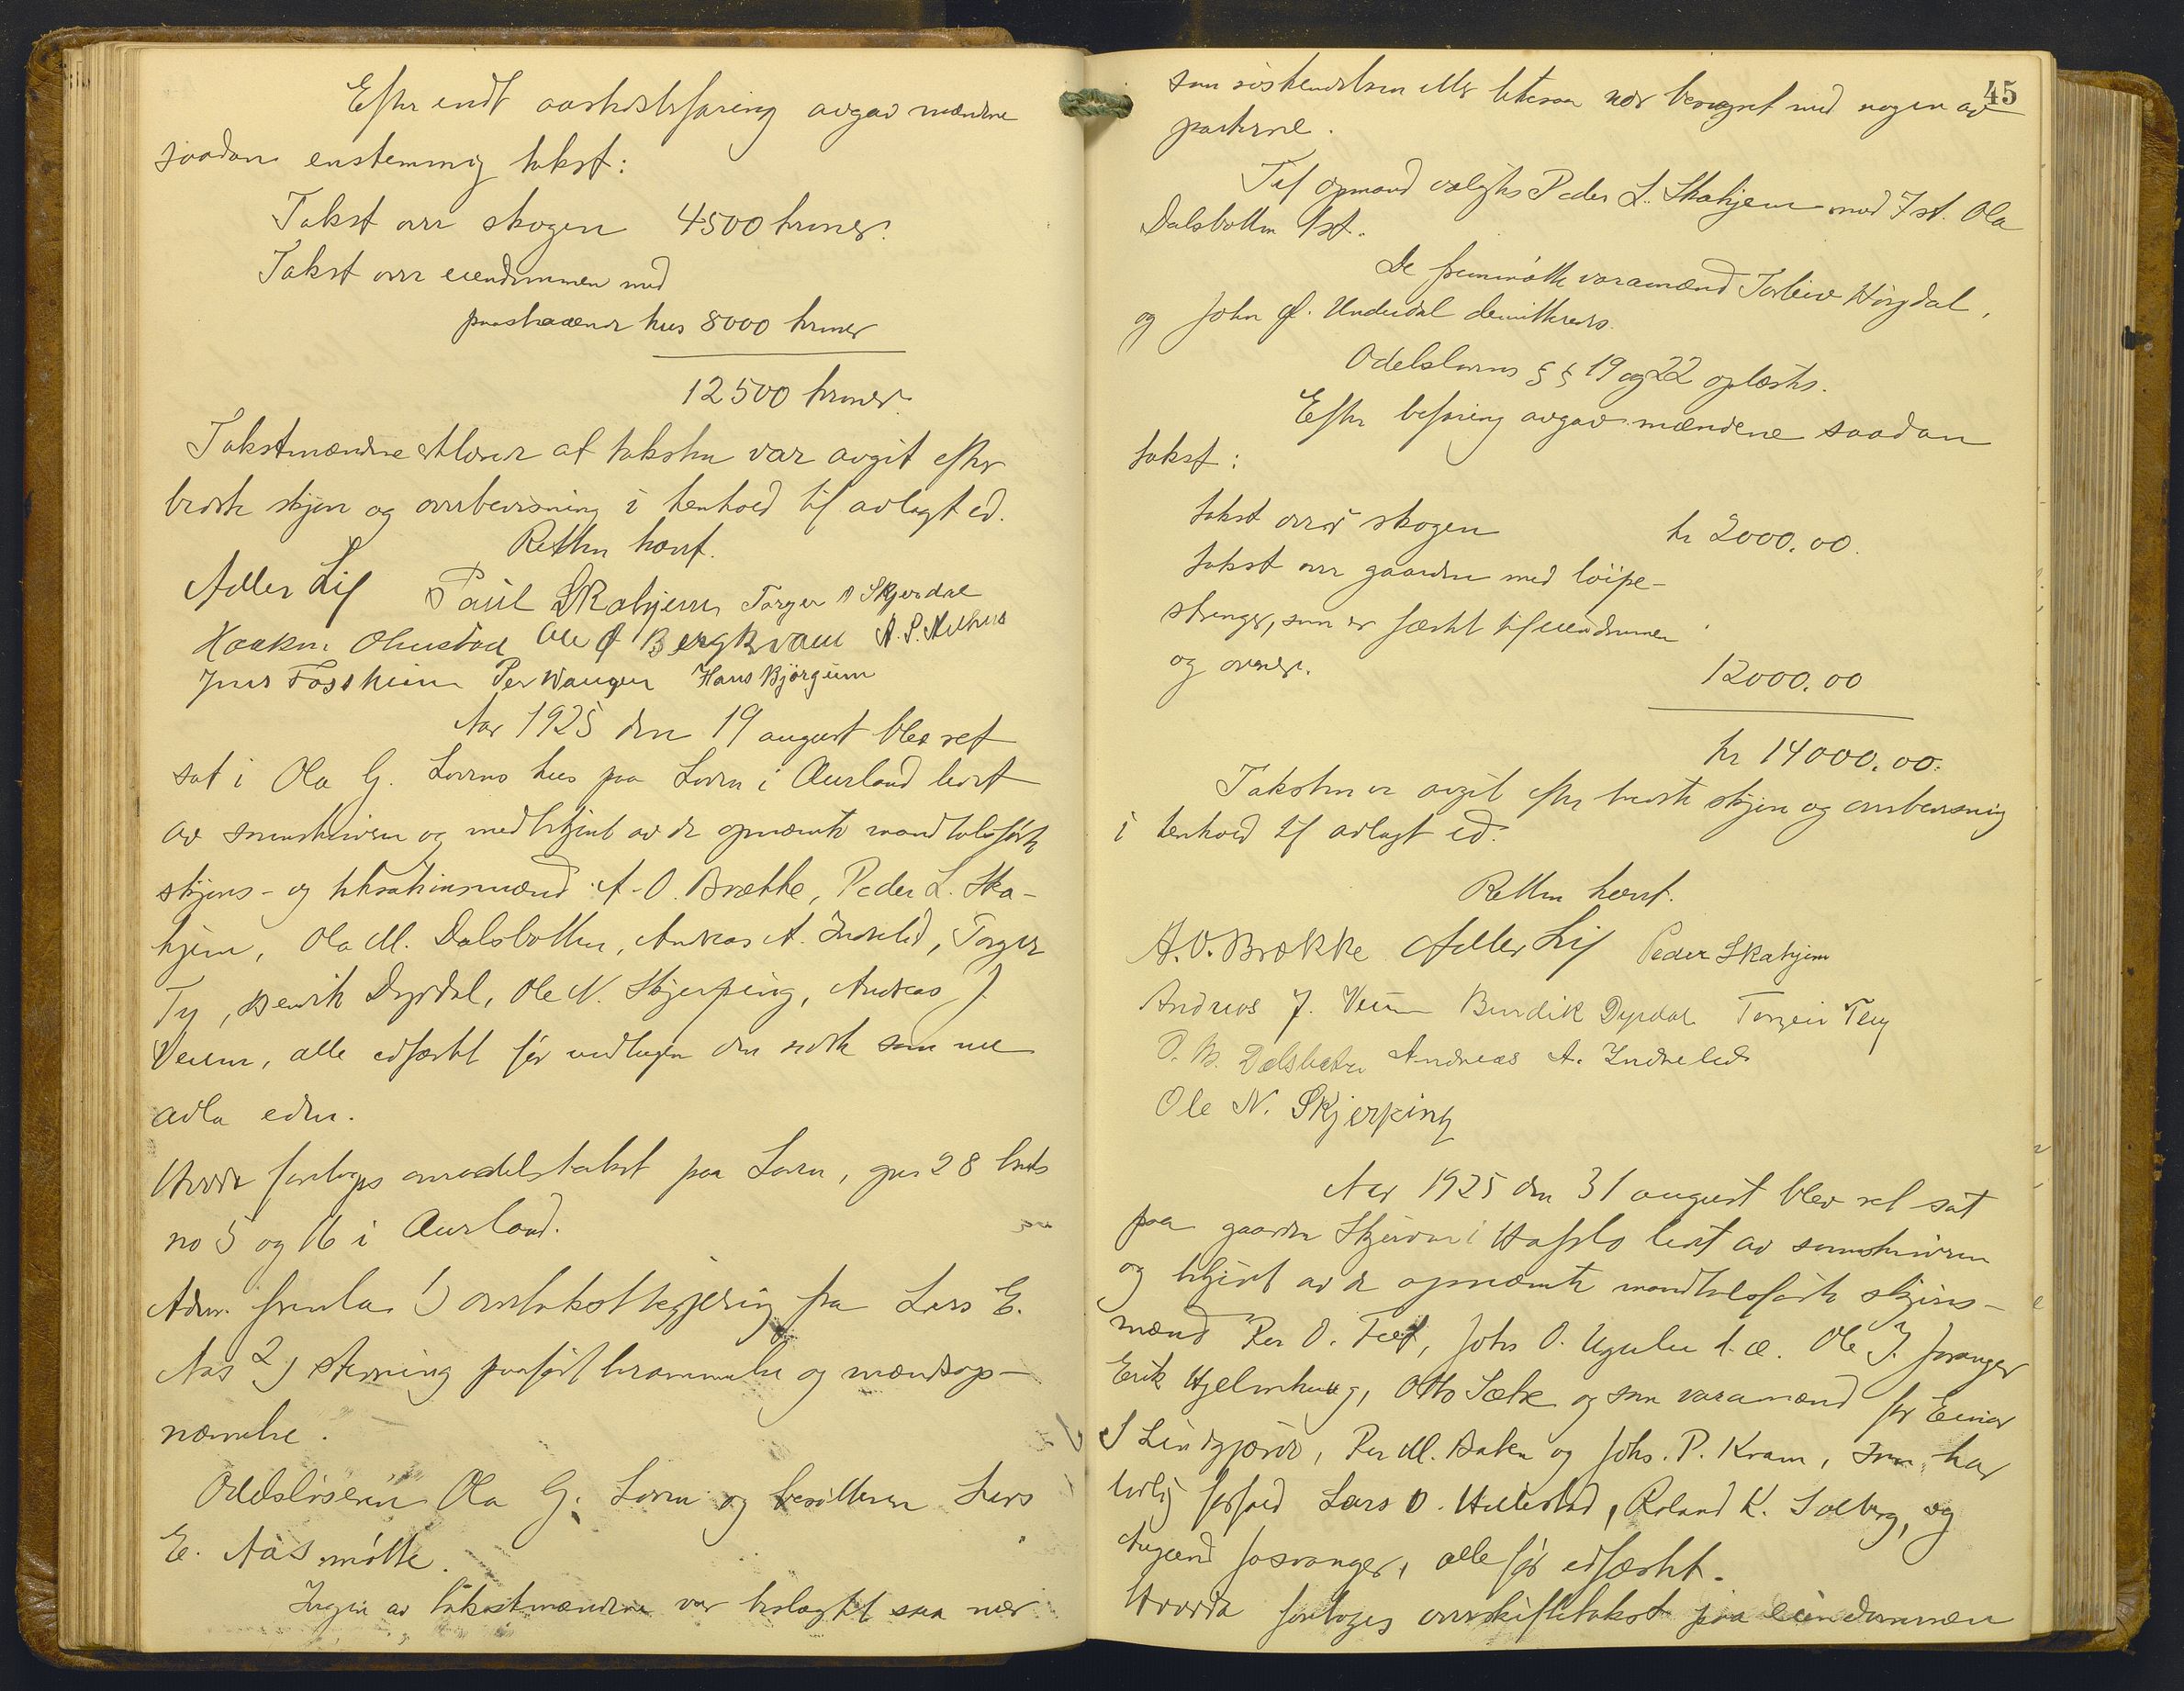 Efter endt aastedsbefaring avgav mændene
saadan enstemmig takst:
Takst over skogen 4500 kroner.
Takst over eiendommen med
paastaaende hus 8000 kroner
12500 kroner.
Takstmændene erklærer at taksten var avgit efter
bedste skjøn og overbevisning i henhold til avlagt ed.
Retten hævet.
Adler Lif Paul Skahjem Torger O Skjerdal
Haakon Ohnstad Ole O Bergkvam A. P. Melhus
Jens Fossheim Per Wangen Hans Bjørgum
Aar 1925 den 19 august blev ret
sat i Ola G. Lovens hus paa Loven i Aurland ledet
av sorenskriveren og medbetjent av de opnævnte mandtalsførte
skjøns- og taksationsmænd A. O. Brække, Peder L. Ska-
hjem, Ola M. Dalsbotten, Andreas A. Indrelid, Torger
Ty, Bendik Dyrdal, Ole N. Skjerping, Andreas J.
Veum, alle edfæstet før undtagen den sidste som nu
avla eden.
Hvorda foretoges overodelstakst paa Loven, gnr 28 bruks
no 5 og 16 i Aurland.
Adm. fremla 1) overtakstbegjæring fra Lars E.
Aas 2) stevning paaført berammelse og mændsop-
nævnelse.
Odelsløseren Ola G. Loven og besidderen Lars
E. Aas møtte.
Ingen av takstmændene var beslægtet saa nær
45
som søskendebarn eller likesaa nær besvogret med nogen av
parterne.
Til opmand valgtes Peder L. Skahjem med 7 st. Ola
Dalsbotten 1 st.
De fremmøtte varamænd Torleiv Høydal,
og John O. Underdal demitteredes.
Odelslovens § § 19 og 22 oplæstes.
Efter befaring avgav mændene saadan
takst:
takst over skogen kr 2000.00.
takst over gaarden med løipe-
strenger, som er fæstet til eiendommen
og ovener. 12000.00
kr 14000.00.
Taksten er avgit efter bedste skjøn og overbevisning
i henhold til avlagt ed.
Retten hævet.
A. O. Brække Adler Lif Peder Skahjem
Andreas J. Veum Bendik Dyrdal Torgeir Ty
O. M. Dalsbotten Andreas A. Indrelid
Ole N. Skjerping
Aar 1925 den 31 august blev ret sat
paa gaarden Skjerven i Hafslo ledet av sorenskriveren
og betjent av de opnævnte mandtalsførte skjøns-
mænd Per O. Feet, Johs O. Ugulen d. æ. Ole J. Joranger
Erik Hjelmhaug, Otto Sætre og som varamænd for Einar
S Lindgjærde, Per M. Bakken og Johs. P. Kvam, som har
lovlig forfald Lars O. Hillestad, Roland K. Solberg, og
Augund Joranger, alle før edfæstet.
Hvorda foretoges overskiftetakst paa eiendommen